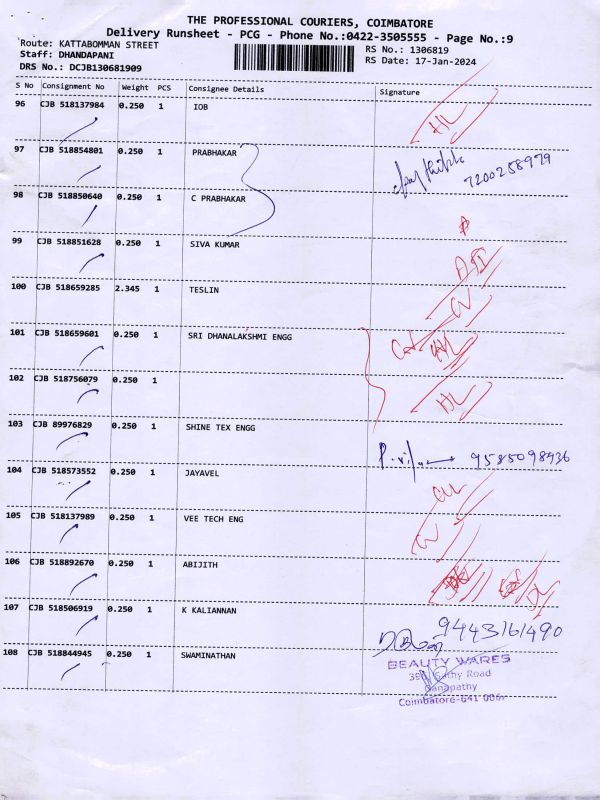 THE PROFESSIONAL COURIERS, COIMBATORE
Delivery Runsheet - PCG - Phone No.:0422-3505555 - Page No.:9
Route: KATTABOMMAN STREET
Staff: DHANDAPANI
DRS No.: DCJB130681909
RS No.: 1306819
RS Date: 17-Jan-2024
S No Consignment No Weight PCS Consignee Details Signature
96 CJB 518137984 0.250 1 IOB
97 CJB 518854801 0.250 1 PRABHAKAR
7200258979
98 CJB 518850640 0.250 1 C PRABHAKAR
99 CJB 518851628 0.250 1 SIVA KUMAR
100 CJB 518659285 2.345 1 TESLIN
101 CJB 518659601 0.250 1 SRI DHANALAKSHMI ENGG
102 CJB 518756079 0.250 1
103 CJB 89976829 0.250 1 SHINE TEX ENGG
9585098936
104 CJB 518573552 0.250 1 JAYAVEL
105 CJB 518137989 0.250 1 VEE TECH ENG
106 CJB 518892670 0.250 1 ABIJITH
107 CJB 518506919 0.250 1 K KALIANNAN
9443161490
108 CJB 518844945 0.250 1 SWAMINATHAN
BEAUTY WARES
Sathy Road
Ganapathy
Coimbatore-641 006.